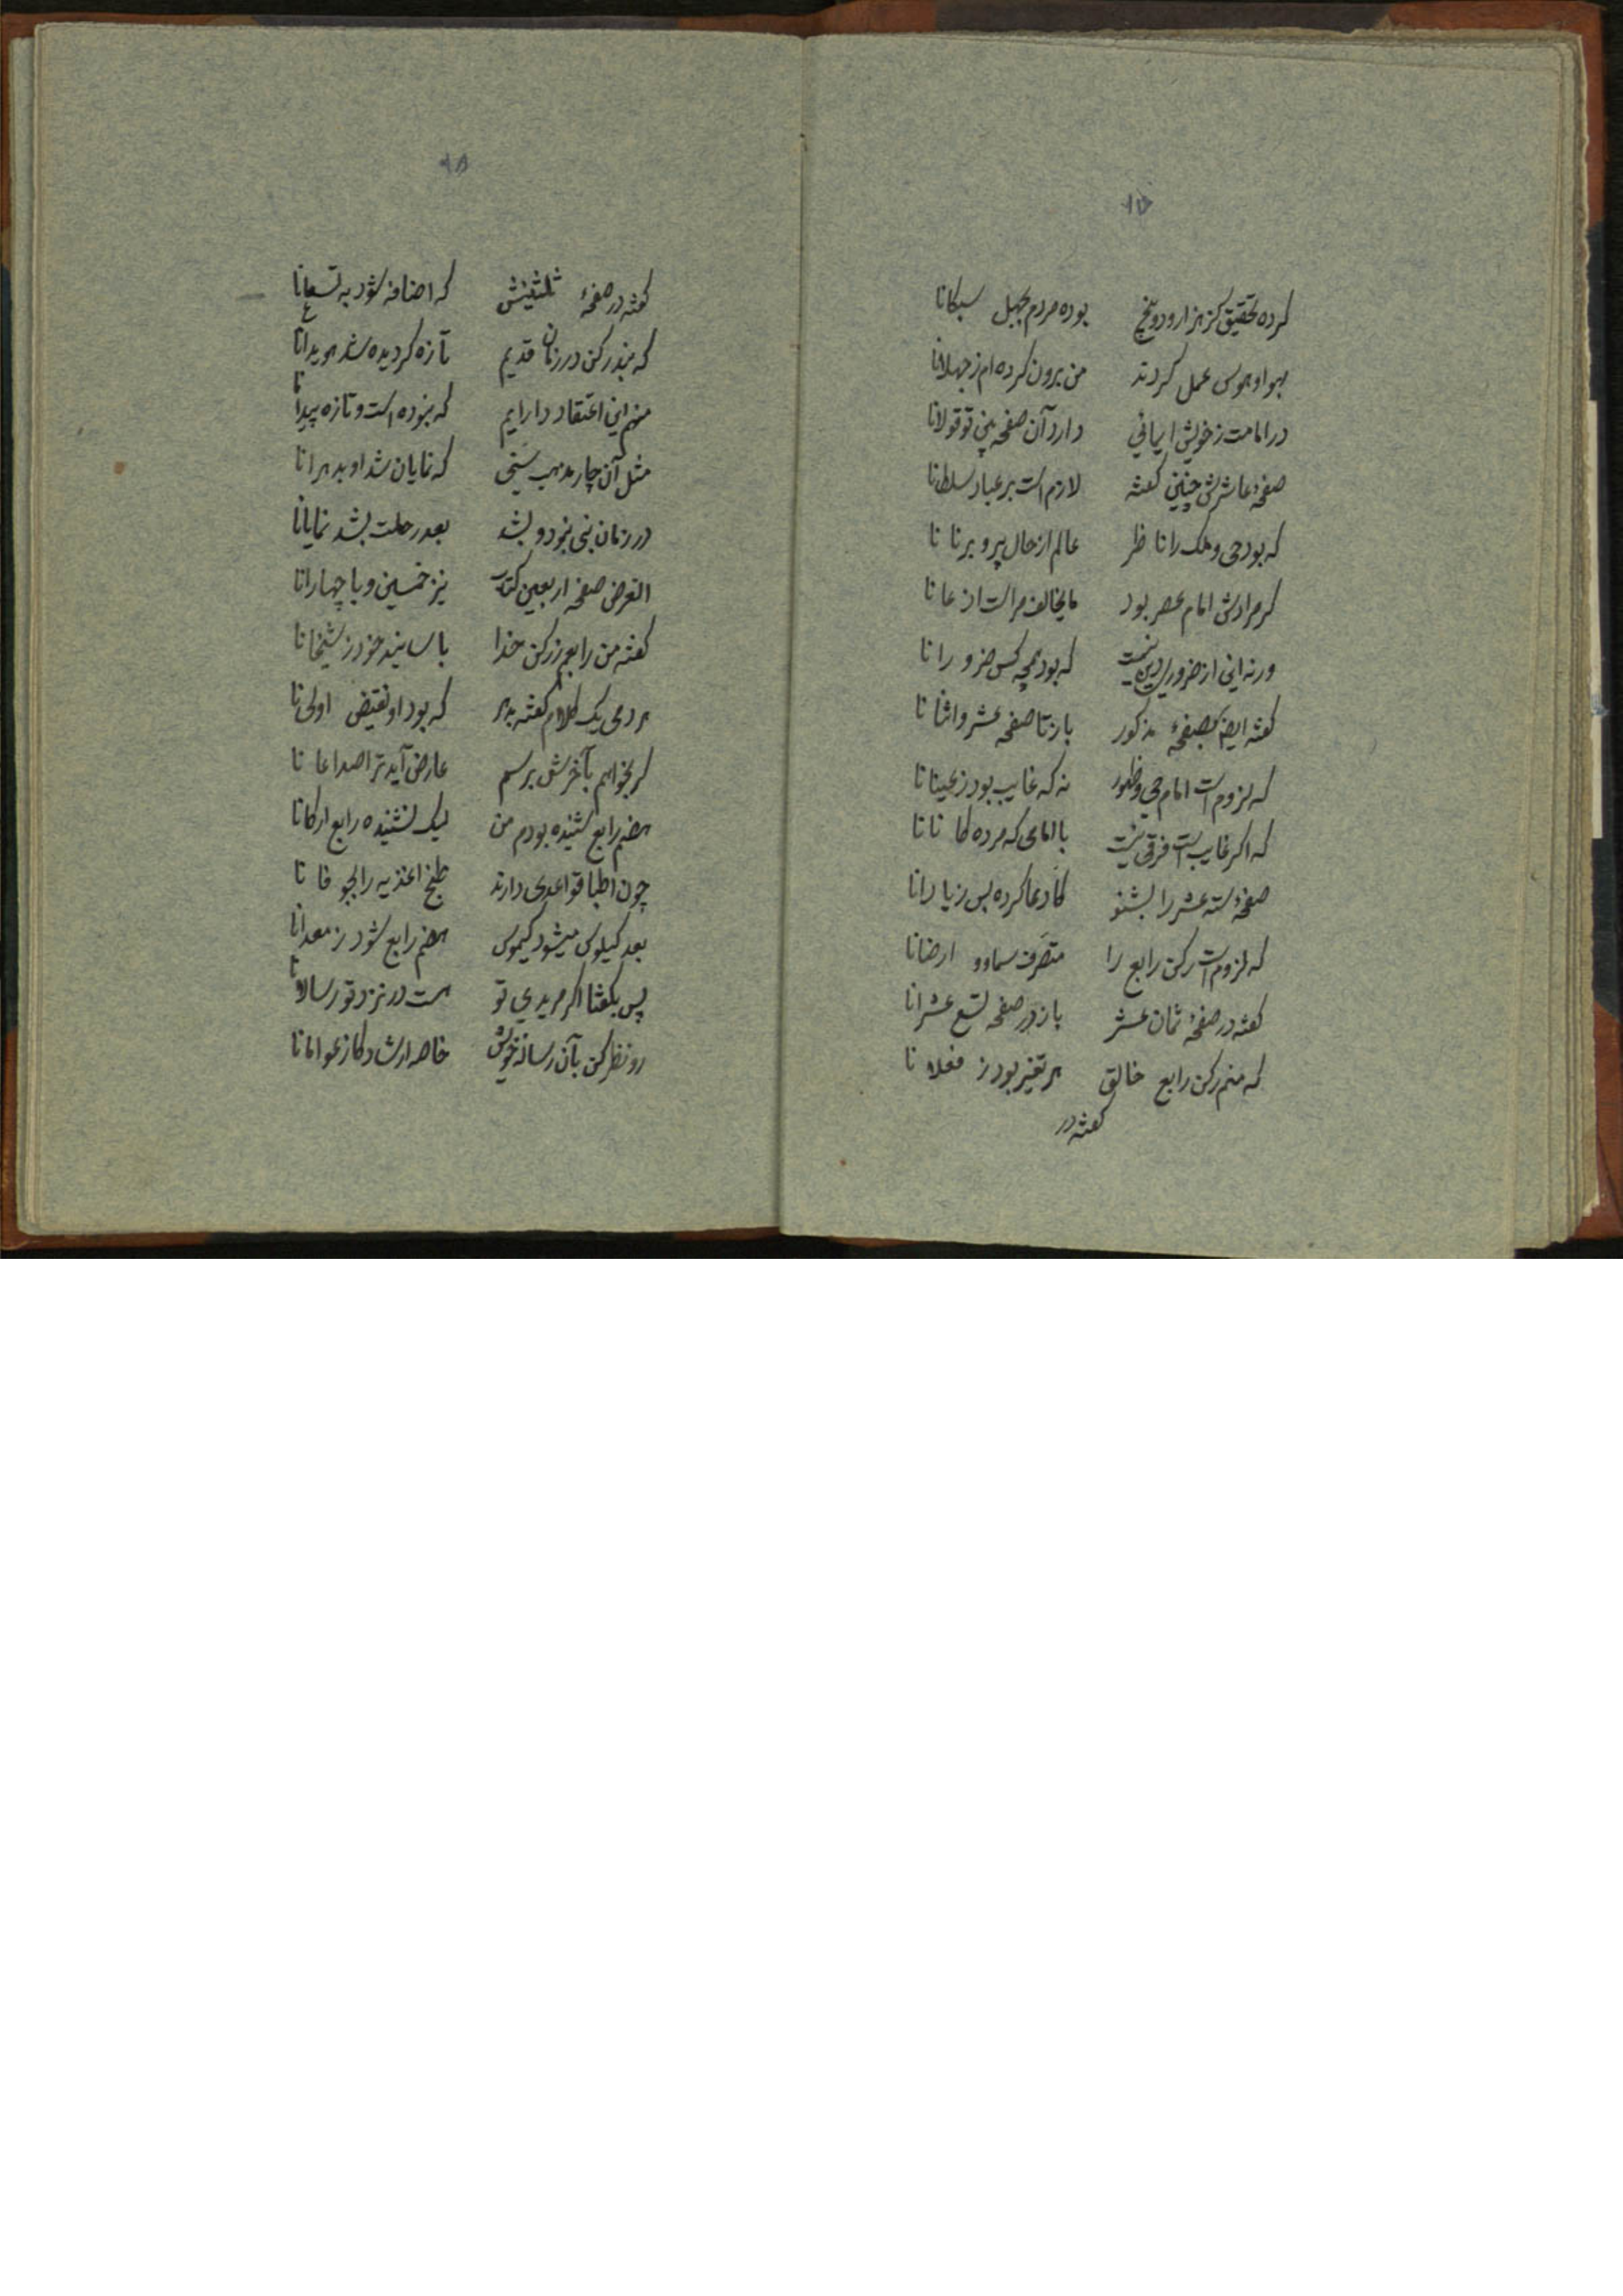 کرده تحقیق کز هزار و دو پنج بوده مردم بجهل سبکانا
بهوا و هوس عمل کردند من برون کرده‌ام ز جهلانا
در امامت ز خویش ایمانی دارد آن صفحه بین تو قولانا
صفحهٔ عاشرش چنین گفته لازم است بر عباد سلطانا
که بود حی و ملک را ناظر عالم از حال پیر و برنا نا
گر مرادش امام عصر بود ما یخالف مراست اذعانا
ورنه این از ضروری دین نیست که بود بچه کس ضرورانا
گفته ایضا بصفحهٔ مذکور باز تا صفحه عشر و اثنانا
که لزوم است امام حی و ظهور نه که غایب بود ز عینانا
که اگر غایب است فرقی نیست با امامی که مرده کانانا
صفحهٔ سته عشر را بشنو کادعا کرده بس زیادانا
که لزوم است رکن رابع را متصرف سما و ارضانا
گفته در صفحهٔ ثمان عشر باز در صفحه تسع عشرانا
که منم رکن رابع خالق هر تغیر بود ز فعلانا
گفته در
۱۸
گفته در صفحهٔ ثلثینش که اضافه شود به تسعانا
که نبد رکن در زمان قدیم تازه گردیده شد هویدانا
منهم این اعتقاد دارایم که نبوده است و تازه پیدانا
مثل آن چار مذهب سنی که نمایان شد او بدهرانا
در زمان نبی نبود و نشد بعد رحلت بشد نمایانا
الغرض صفحه اربعین کتاب نیز خمسین و با چهارانا
گفته من رابعم ز رکن خدا با سانید خود ز شیخانا
هر دمی یک کلام گفته بدهر که بود او نقیض اولی نا
گر بخواهم بآخرش برسم عارض آید ترا صداعا نا
هضم رابع شنیده بودم من لیک نشنیده رابع ارکانا
چون اطبا قواعدی دارند طبخ اغذیه را بجوفانا
بعد کیلوس میشود کیموس هضم رابع شود ز معدانا
پس بگفتا اگر مریدی تو هست در نزد تو رسالانا
رو نظر کن بآن رسالهٔ خویش خاصه ارشاد کاز عوامانا